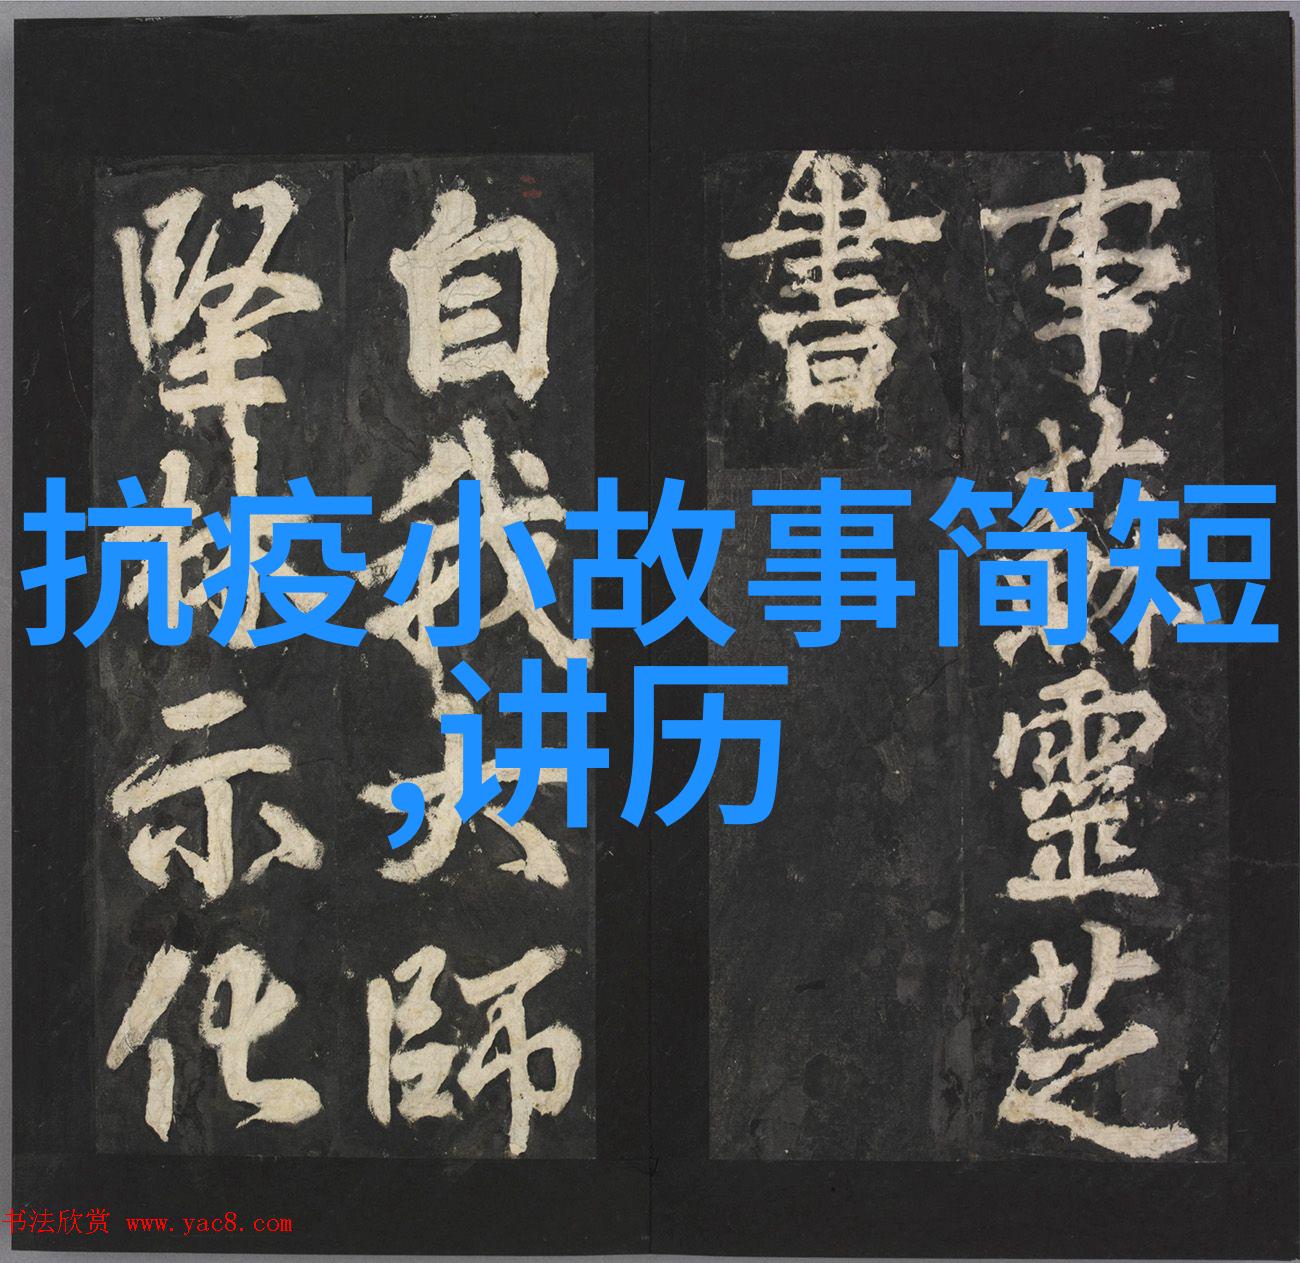 事蘇靈芝
書
自我大師
堅林示化
抗疫小故事简短
,讲历
书法欣赏 www.yac8.com